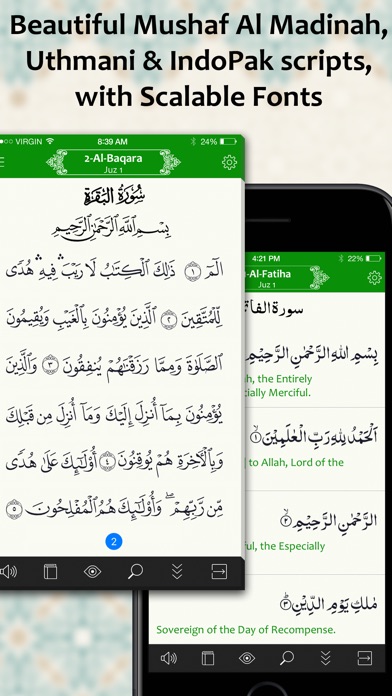 Beautiful Mushaf Al Madinah,
Uthmani & IndoPak scripts,
with Scalable Fonts
VIRGIN 8:39 AM 24%
2-Al-Baqara
Juz 1
سُورَةُ البَقَرَةِ
بِسْمِ ٱللَّهِ ٱلرَّحْمَٰنِ ٱلرَّحِيمِ
الٓمٓ ١ ذَٰلِكَ ٱلْكِتَٰبُ لَا رَيْبَ ۛ فِيهِ ۛ هُدًى
لِّلْمُتَّقِينَ ٢ ٱلَّذِينَ يُؤْمِنُونَ بِٱلْغَيْبِ وَيُقِيمُونَ
ٱلصَّلَوٰةَ وَمِمَّا رَزَقْنَٰهُمْ يُنفِقُونَ ٣ وَٱلَّذِينَ
يُؤْمِنُونَ بِمَآ أُنزِلَ إِلَيْكَ وَمَآ أُنزِلَ مِن قَبْلِكَ
وَبِٱلْءَاخِرَةِ هُمْ يُوقِنُونَ ٤ أُو۟لَٰٓئِكَ عَلَىٰ هُدًى
مِّن رَّبِّهِمْ ۖ وَأُو۟لَٰٓئِكَ هُمُ ٱلْمُفْلِحُونَ ٥
2
4:21 PM 22%
-Al-Fatiha
Juz 1
سورة الفا
بِسْمِ اللهِ الرَّحْمٰنِ الرَّحِيْمِ
h, the Entirely
cially Merciful.
اَلْحَمْدُ لِلّٰهِ رَبِّ الْعٰلَمِيْنَ ۙ‏ ١
to Allah, Lord of the
الرَّحْمٰنِ الرَّحِيْمِ ۙ‏ ٢
ful, the Especially
مٰلِكِ يَوْمِ الدِّيْنِ ؕ‏ ٣
Sovereign of the Day of Recompense.